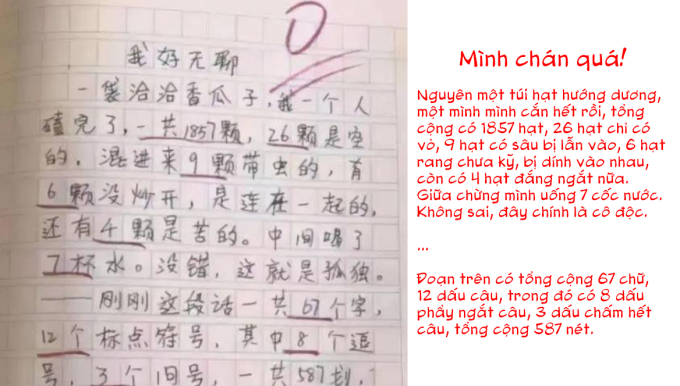 0
我好无聊
一袋洽洽香瓜子,我一个人
磕完了,一共1857颗,26颗是空
的,混进来9颗带虫的,有
6颗没炒开,是连在一起的,
还有4颗是苦的。中间喝了
7杯水。没错,这就是孤独。
——刚刚这段话一共67个字,
12个标点符号,其中8个逗
号,3个句号,一共587划,
Mình chán quá!
Nguyên một túi hạt hướng dương,
một mình mình cắn hết rồi, tổng
cộng có 1857 hạt, 26 hạt chỉ có
vỏ, 9 hạt có sâu bị lẫn vào, 6 hạt
rang chưa kỹ, bị dính vào nhau,
còn có 4 hạt đắng ngắt nữa.
Giữa chừng mình uống 7 cốc nước.
Không sai, đây chính là cô độc.
...
Đoạn trên có tổng cộng 67 chữ,
12 dấu câu, trong đó có 8 dấu
phẩy ngắt câu, 3 dấu chấm hết
câu, tổng cộng 587 nét.